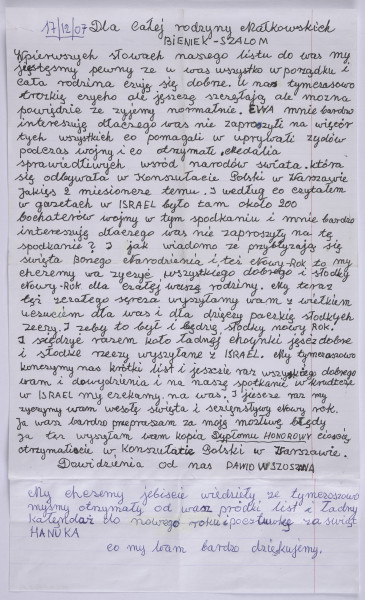 17/12/07 Dla Całej rodzyny Małkowskich
BIENIEK-SZALOM
W pierwszych słowach naszego listu do was my
jesteśmy pewny ze u was wszystko w porządku i
cała rodzina czują się dobrze. U nas tymczasowo
troszkię cycho ale jeszcze szczelają ale można
powiędzic ze zyjemy normalnie. EWA mnie bardzo
interesują dlaczego was nie zaprosyli na więczór
tych wszystkich co pomagali w ukrywali zydów
podczas wojny i co otrzymali Medalia
sprawiedliwych wsród narodów swiata. która
się odbywała w Konsultacie Polski w Warzawie
Jakięs 2 miesionce temu. I według co czytałem
w gazetach w ISRAEL było tam około 200
bochaterów wojny w tym spodkaniu i mnie bardzo
interesują dlaczego was nie zaprosyły na tę
spodkanie? I jak wiadomo ze przyblyzają się
swięta Bonego Narodzenia i też Nowy-Rok to my
chcemy wa zyczyć wszystkiego dobrego i słodky
Nowy-Rok dla całej waszej rodziny. My teraz
też z całego serca wysyłamy wam z wielkiem
ucuciem dla was i dla dzięcy paczkię słodkych
rzeczy. I zeby to był i będzię słodky nowy Rok.
I razem koło ładnej choinky jescz dobre
i słodke rzeczy wysyłane z ISRAEL. My tymczasowo
konczymy nas krótki list i jeszcie raz wszyskiego dobrego
wam i dowydzenia i na naszę spotkanie w krodkcze
w ISRAEL my czekamy na was. I jescze raz my
zyczymy wam wesołę swięta i scięnslywy nowy rok.
Ja was bardzo przepraszam za moję możliwe błędy
Ja też wysyłam wam kopia Dyplomu HONOROWY
otrzymaliscie w Konsultacie Polski w Warzawie.
Dowidzenia od nas DAWID WSZOSZYNA
My chcemy jebiscie wiedziely ze tymczoszowo
mysmy otrzymaly od was list i ładny
kalendaż do nowego roku i pocztówkę za swięt
HANUKA
co my wam bardzo dziękujemy.